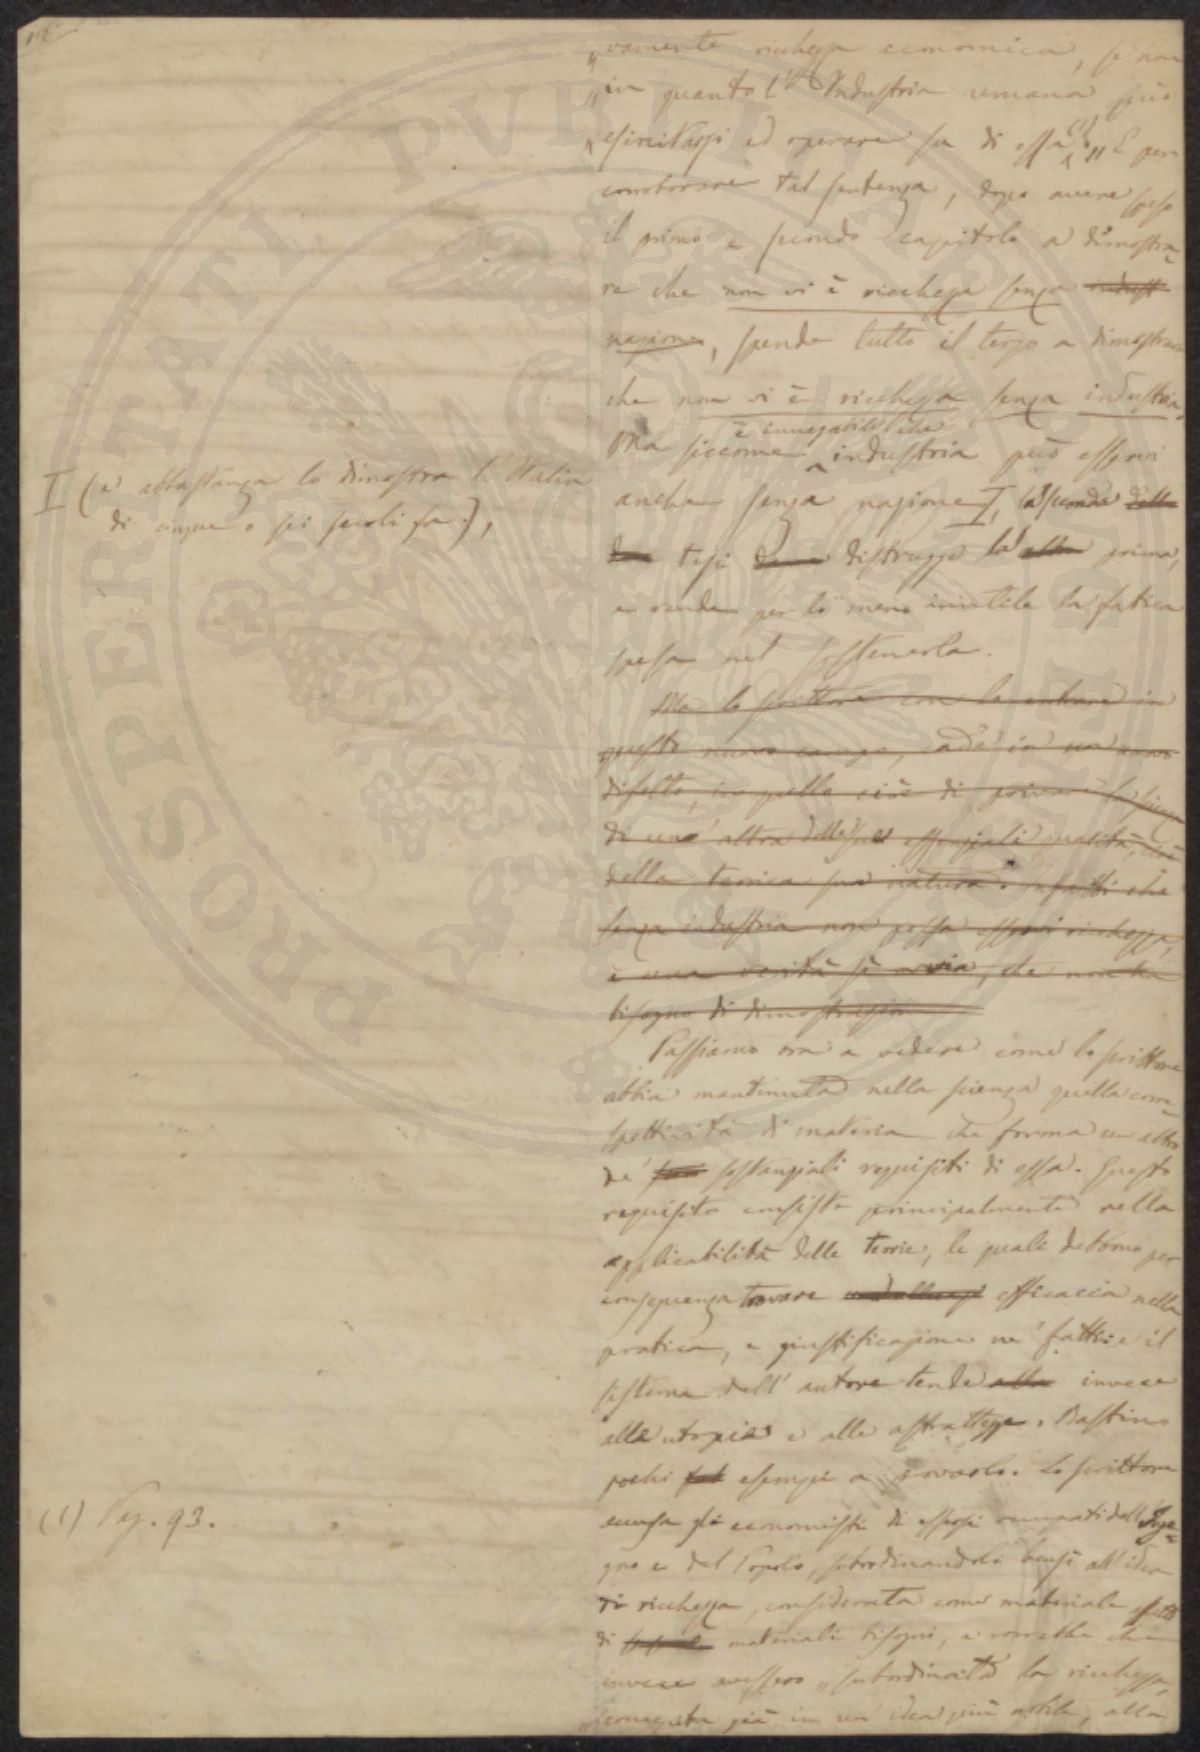 12
„ vamente ricchezza economica, se non
„ in quanto l'Industria umana può
„ esercitarsi ed operare su di essa (1)„ E per
corroborare tal sentenza, dopo avere speso
il primo e secondo capitolo a dimostra=
re che non vi è ricchezza senza indust
nazione, spende tutto il terzo a dimostrare
che non vi è ricchezza senza industria.
Ma siccome è innegabile che industria può esservi
anche senza nazione I, la seconda delle
due tesi distrugge la altra prima,
e rende per lo meno inutile la fatica
spesa nel sostenerla.
Ma lo scrittore con lo entrare in
questo nuovo campo, cade in un nuovo
difetto, in quello cioè di privare la scienza
di un'altra delle sue essenziali qualità, cioè
della teorica sua natura. Infatti che
senza industria non possa esservi ricchezza,
è una verità sì ovvia, che non ha
bisogno di dimostrazione
Passiamo ora a vedere come lo scrittore
abbia mantenuta nella scienza quella corre=
spettività di materia che forma un altro
de' suoi sostanziali requisiti di essa. Questo
requisito consiste principalmente nella
applicabilità delle teorie, le quali debbono per
conseguenza trovare efficacia nella
pratica, e giustificazione ne' fatti: e il
sistema dell'autore tende alla invece
alle utopie e alle astrattezze. Bastino
pochi esempi a provarlo. Lo scrittore
accusa gli economisti di essersi occupati dell'Inge=
gno e del Popolo, subordinandoli bensì all'idea
di ricchezza, considerata come materiale effetto
di materiali bisogni, e vorrebbe che
invece avessero „ subordinata la ricchezza,
„ concepita già in un'idea più nobile, alla
I (e abbastanza lo dimostra l'Italia
di cinque o sei secoli fa.),
(1) Pag. 93.